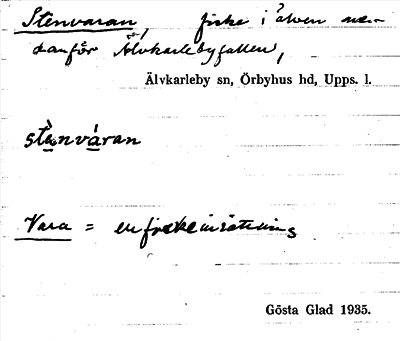 Stenvaran, fiske i älven ne-
danför Älvkarlebyfallen,
Älvkarleby sn, Örbyhus hd, Upps. l.
stènváran
Vara = en fiskeinrättning
Gösta Glad 1935.